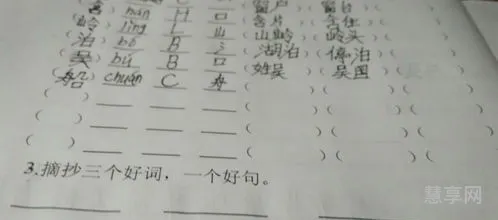 (含) hán H 口 (窗户) (窗台) (
(岭) lǐng L 山 (山岭) (岭头) (
(泊) bó B 氵 (湖泊) (停泊) (
(吴) bú B 口 (姓吴) (吴国) (
(船) chuán C 舟 ( ) ( ) (
( ) ___ ___ ___ ( ) ( ) ( )
( ) ___ ___ ___ ( ) ( ) ( )
( ) ___ ___ ___ ( ) ( ) ( )
3.摘抄三个好词，一个好句。
慧享网